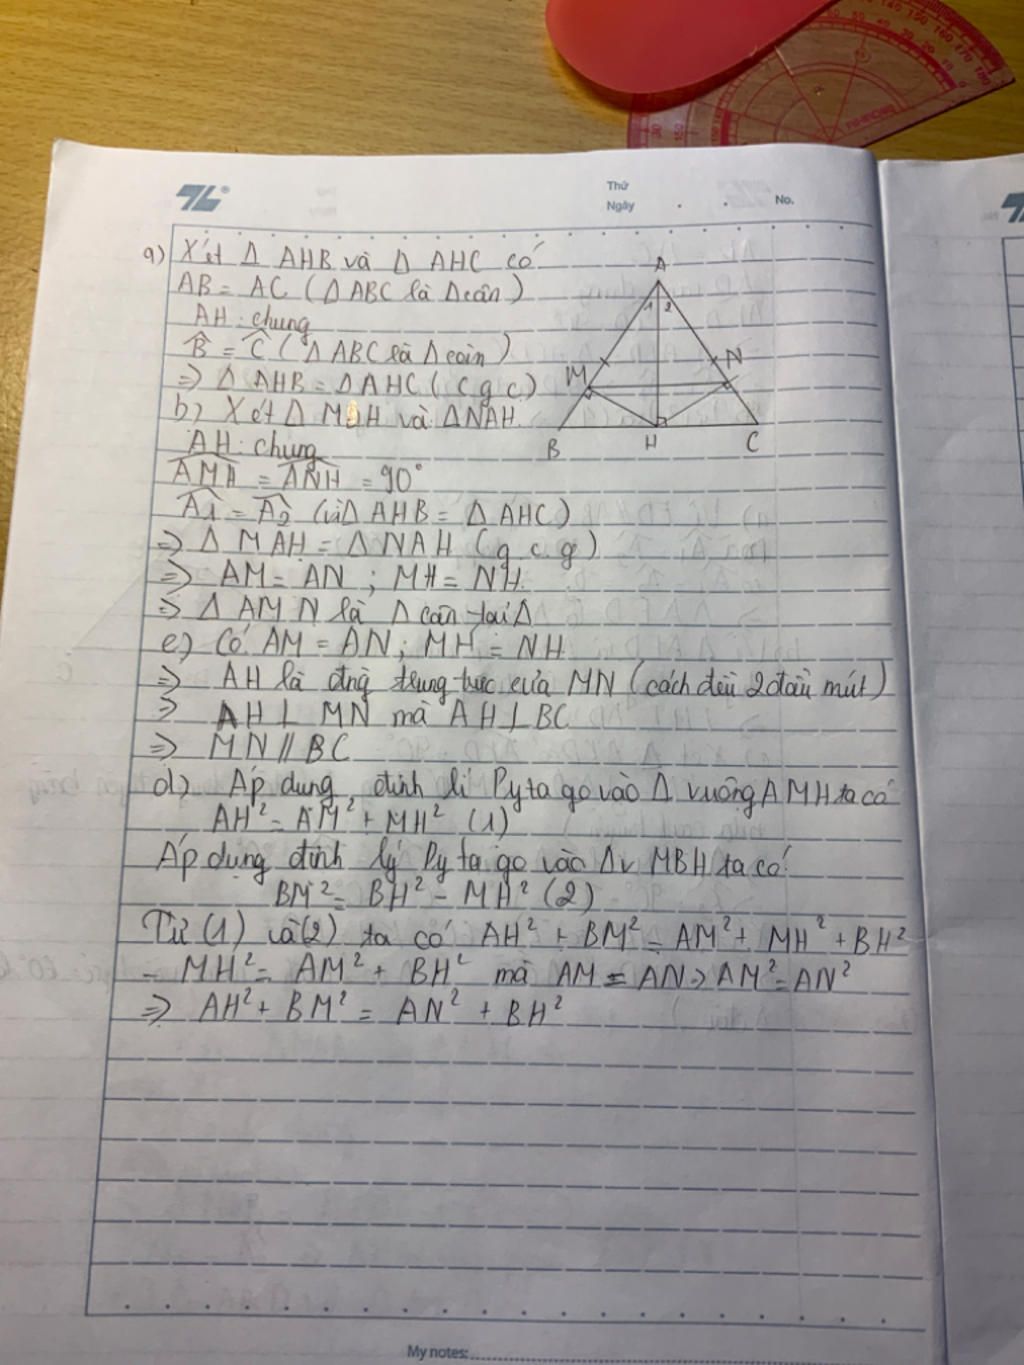 Thứ
Ngày . . No.
a) Xét Δ AHB và Δ AHC có
AB = AC (Δ ABC là Δ cân)
AH: chung
B̂ = Ĉ (Δ ABC là Δ cân)
=> Δ AHB = Δ AHC (c g c)
b) Xét Δ MAH và Δ NAH
AH: chung
AMA = ANH = 90°
Â1 = Â2 (vì Δ AHB = Δ AHC)
=> Δ MAH = Δ NAH (g c g)
=> AM = AN ; MH = NH
=> Δ AMN là Δ cân tại A
c) Có AM = AN ; MH = NH
=> AH là đng trung trực của MN (cách đều 2 đầu mút)
=> AH ⊥ MN mà AH ⊥ BC
=> MN // BC
d) Áp dụng định lí Pytago vào Δ vuông AMH ta có
AH² = AM² + MH² (1)
Áp dụng định lý Pytago vào Δv MBH ta có
BM² = BH² - MH² (2)
Từ (1) và (2) ta có AH² + BM² = AM² + MH² + BH²
- MH² = AM² + BH² mà AM = AN => AM² = AN²
=> AH² + BM² = AN² + BH²
A
1 2
M N
B H C
My notes: